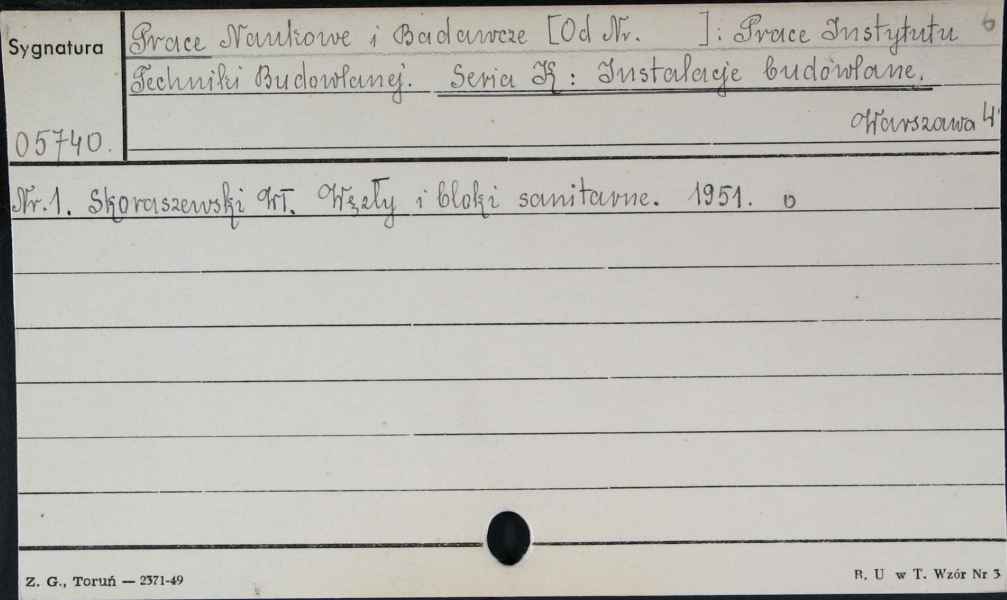 Sygnatura
Prace Naukowe i Badawcze [Od Nr. ]: Prace Instytutu 6
Techniki Budowlanej. Seria K : Instalacje budowlane.
Warszawa 4°
05740.
Nr. 1. Skoraszewski Wł. Węzły i bloki sanitarne. 1951. o
Z. G., Toruń — 2371-49
B. U w T. Wzór Nr 3